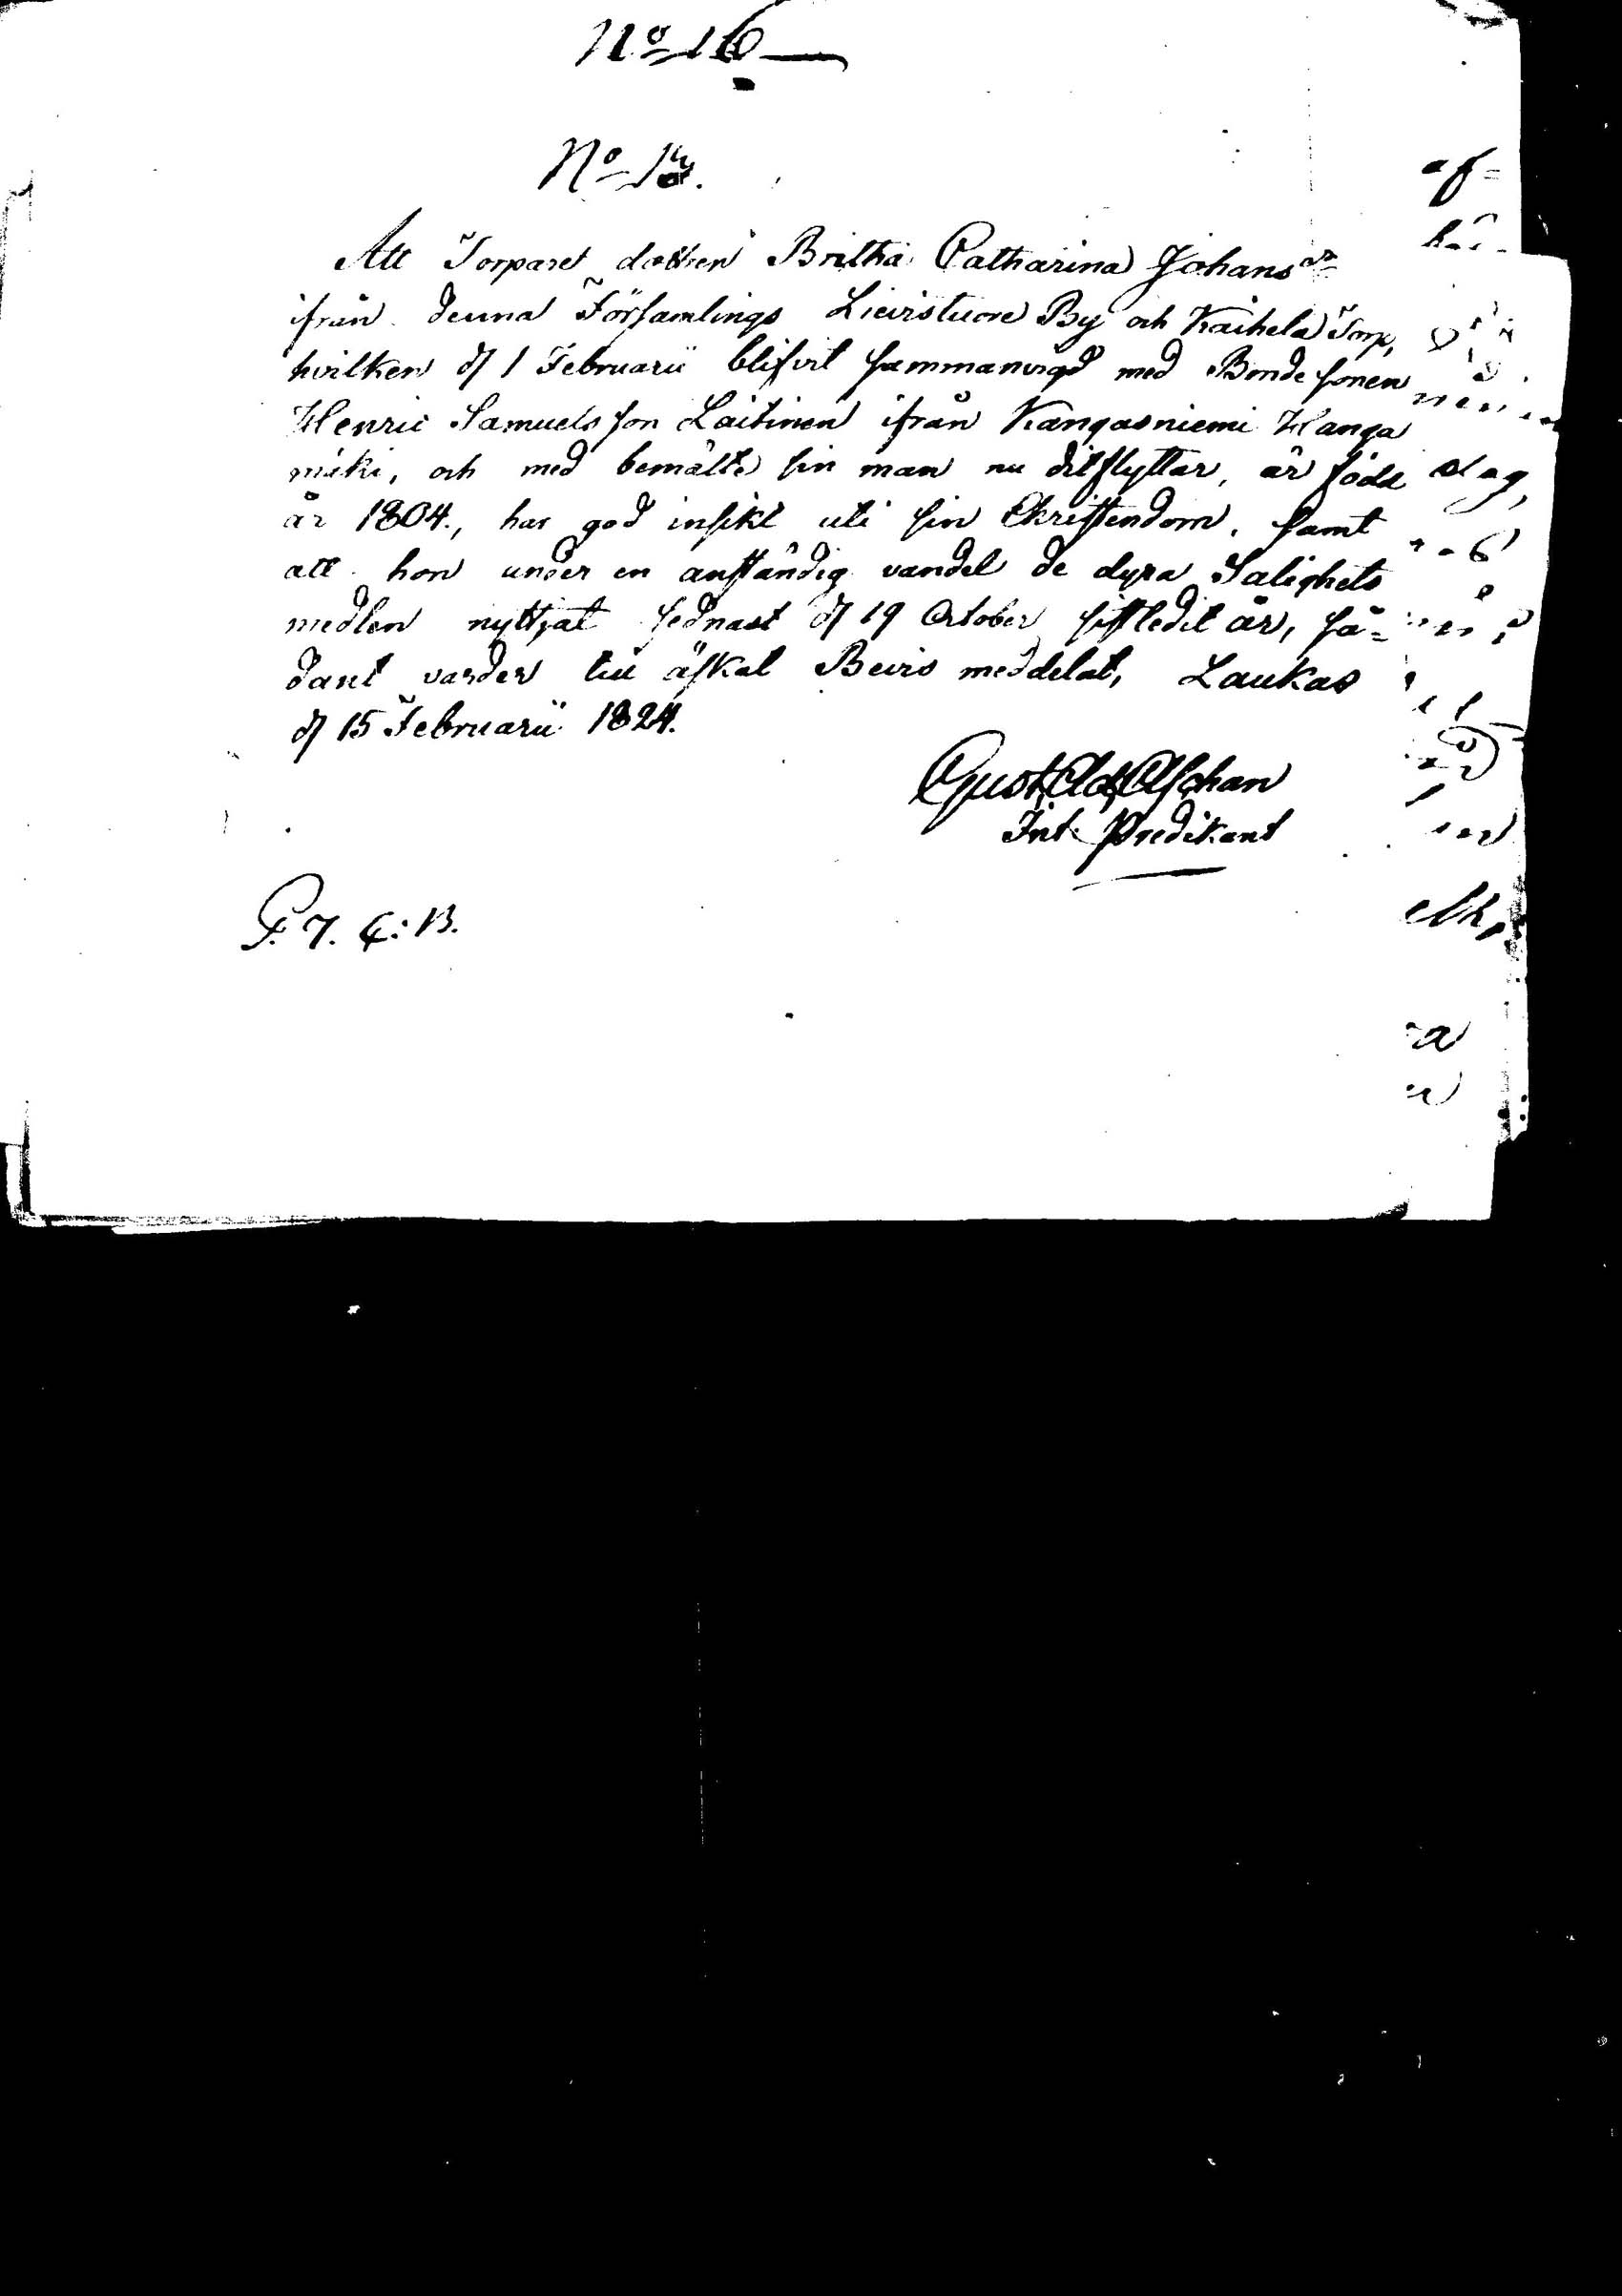 No 16
No 13.
Att Torparedottren Britha Catharina Johansdr
ifrån denna Församlings Lievistuore By och Kaihela Torp,
hvilken d 1 Februarii blifvit sammanvigd med Bondesonen
Henric Samuelsson Laitinen ifrån Kangasniemi Hanga
mäki, och med bemälte sin man nu ditflyttar, är född
år 1804, har god insikt uti sin Christendom, samt
att hon under en anständig vandel de dyra Salighets
medlen nyttjat sednast d 19 October sistledit år, så=
dant varder till äskat Bevis meddelat, Laukas
d 15 Februarii 1824.
Gust. Ad. Aschan
Int. Predikant
P. 7. C: B.